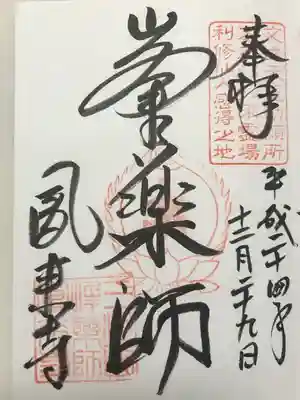 奉拝
文 勅願所
霊場
利修仙人感得之地
峯薬師
鳳来寺
平成二十四年
十二月二十九日